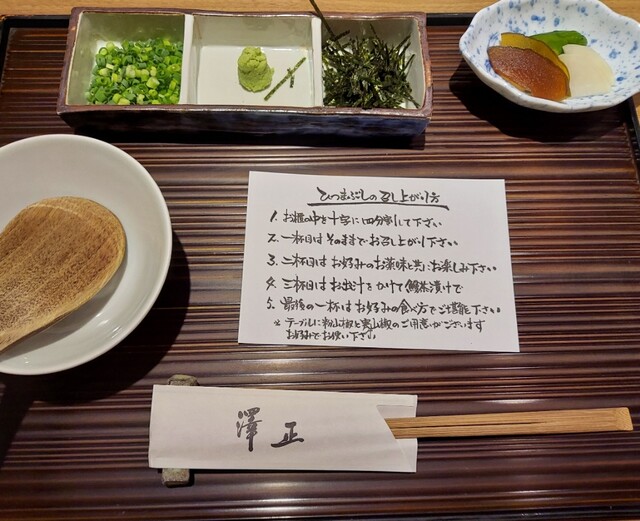 ひつまぶしの召し上がり方
1. お櫃の中を十字に四分割して下さい
2. 一杯目はそのままでお召し上がり下さい
3. 二杯目はお好みのお薬味と共にお楽しみ下さい
4. 三杯目はお出汁をかけて鰻茶漬けで
5. 最後の一杯はお好みの食べ方でご堪能下さい
※テーブルに粉山椒と実山椒のご用意がございます
お好みでお使い下さい
澤正